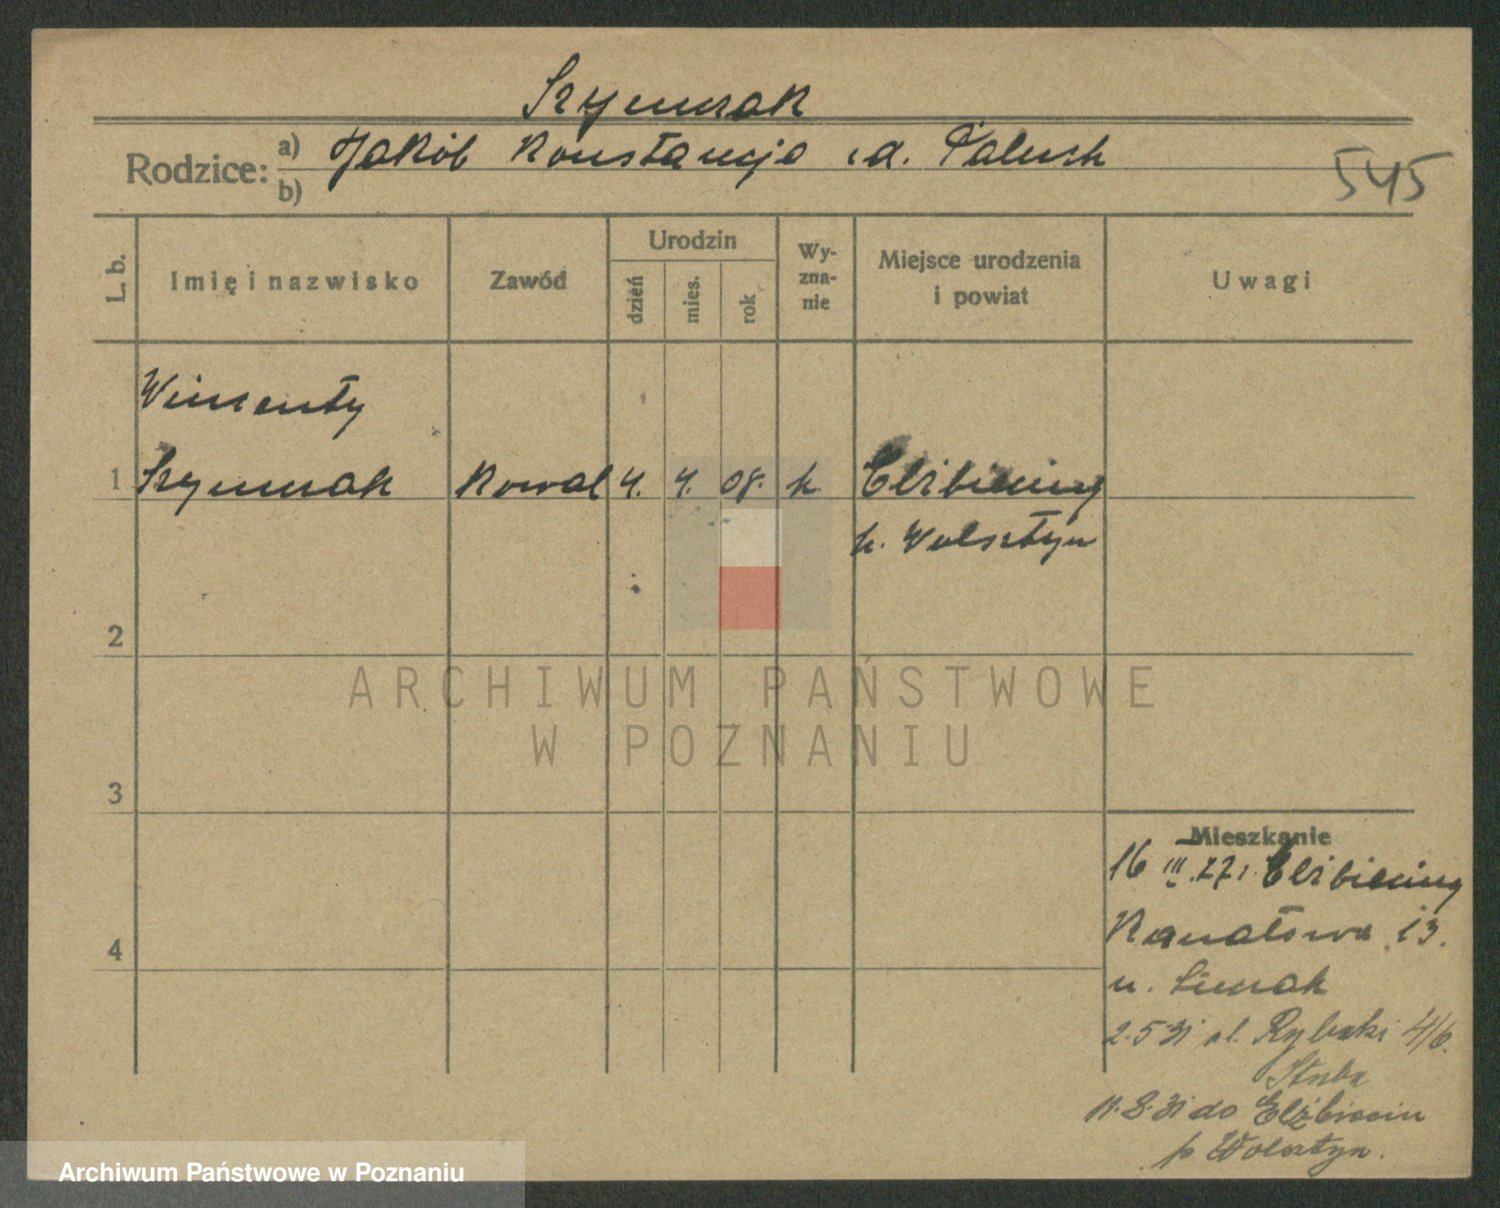 Szymczak
Rodzice: a) Jakób Konstancja z d. Paluch
b)
545
L. b.
Imię i nazwisko
Zawód
Urodzin
dzień
mies.
rok
Wy-
zna-
nie
Miejsce urodzenia
i powiat
Uwagi
Wincenty
1 Szymczak Kowal 4. 4. 08. k. Elżbieciny
p. Wolsztyn
2
3
4
Mieszkanie
16 III. 27 z Elżbieciny
Kanałowa 13.
u.
2.5 31 ul. Rybaki 4/6.
11.8.31 do Elżbiecin
p Wolsztyn.
ARCHIWUM PAŃSTWOWE
W POZNANIU
Archiwum Państwowe w Poznaniu